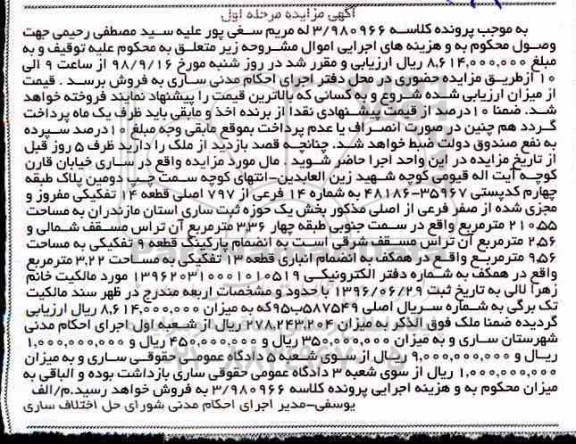 آگهی مزایده مرحله اول
به موجب پرونده کلاسه ۳/۹۸۰۹۶۶ له مریم سغی پور علیه سید مصطفی رحیمی جهت
وصول محکوم به و هزینه های اجرایی اموال مشروحه زیر متعلق به محکوم علیه توقیف و به
مبلغ ۸,۶۱۴,۰۰۰,۰۰۰ ریال ارزیابی و مقرر شد در روز شنبه مورخ ۹۸/۹/۱۶ از ساعت ۹ الی
۱۰ ازطریق مزایده حضوری در محل دفتر اجرای احکام مدنی ساری به فروش برسد . قیمت
از میزان ارزیابی شده شروع و به کسانی که بالاترین قیمت را پیشنهاد نمایند فروخته خواهد
شد. ضمنا ۱۰درصد از قیمت پیشنهادی نقدا از برنده اخذ و مابقی باید ظرف یک ماه پرداخت
گردد هم چنین در صورت انصراف یا عدم پرداخت بموقع مابقی وجه مبلغ ۱۰درصد سپرده
به نفع صندوق دولت ضبط خواهد شد. چنانچه قصد بازدید از ملک را دارید ظرف ۵ روز قبل
از تاریخ مزایده در این واحد اجرا حاضر شوید . مال مورد مزایده واقع در ساری خیابان قارن
کوچه آیت اله قیومی کوچه شهید زین العابدین-انتهای کوچه سمت چپ دومین پلاک طبقه
چهارم کدپستی ۳۵۹۶۷-۴۸۱۸۶ به شماره ۱۴ فرعی از ۷۹۷ اصلی قطعه ۱۴ تفکیکی مفروز و
مجزی شده از صفر فرعی از اصلی مذکور بخش یک حوزه ثبت ساری استان مازندران به مساحت
۲۱۰.۵۵ مترمربع واقع در سمت جنوبی طبقه چهار ۲.۳۶ مترمربع آن تراس مسقف شمالی و
۲.۵۶ مترمربع آن تراس مسقف شرقی است به انضمام پارکینگ قطعه ۹ تفکیکی به مساحت
۹.۵۶ مترمربع واقع در همکف به انضمام انباری قطعه ۱۳ تفکیکی به مساحت ۳.۲۲ مترمربع
واقع در همکف به شماره دفتر الکترونیکی ۱۳۹۶۲۰۳۱۰۰۰۱۰۱۰۵۱۹ مورد مالکیت خانم
زهرا لالی به تاریخ ثبت ۱۳۹۶/۰۶/۲۹ با حدود و مشخصات اربعه مندرج در ظهر سند مالکیت
تک برگی به شماره سریال اصلی ۵۸۷۵۴۹ب۹۵که به میزان ۸,۶۱۴,۰۰۰,۰۰۰ ریال ارزیابی
گردیده ضمنا ملک فوق الذکر به میزان ۲۷۸,۲۴۳,۲۰۴ ریال از شعبه اول اجرای احکام مدنی
شهرستان ساری و به میزان ۳۵۰,۰۰۰,۰۰۰ ریال و ۴۵۰,۰۰۰,۰۰۰ ریال و ۱,۰۰۰,۰۰۰,۰۰۰
ریال و ۹,۰۰۰,۰۰۰,۰۰۰ ریال از سوی شعبه ۵ دادگاه عمومی حقوقی ساری و به میزان
۱,۰۰۰,۰۰۰,۰۰۰ ریال از سوی شعبه ۳ دادگاه عمومی حقوقی ساری بازداشت بوده و الباقی به
میزان محکوم به و هزینه اجرایی پرونده کلاسه ۳/۹۸۰۹۶۶ به فروش خواهد رسید.م/الف
یوسفی-مدیر اجرای احکام مدنی شورای حل اختلاف ساری